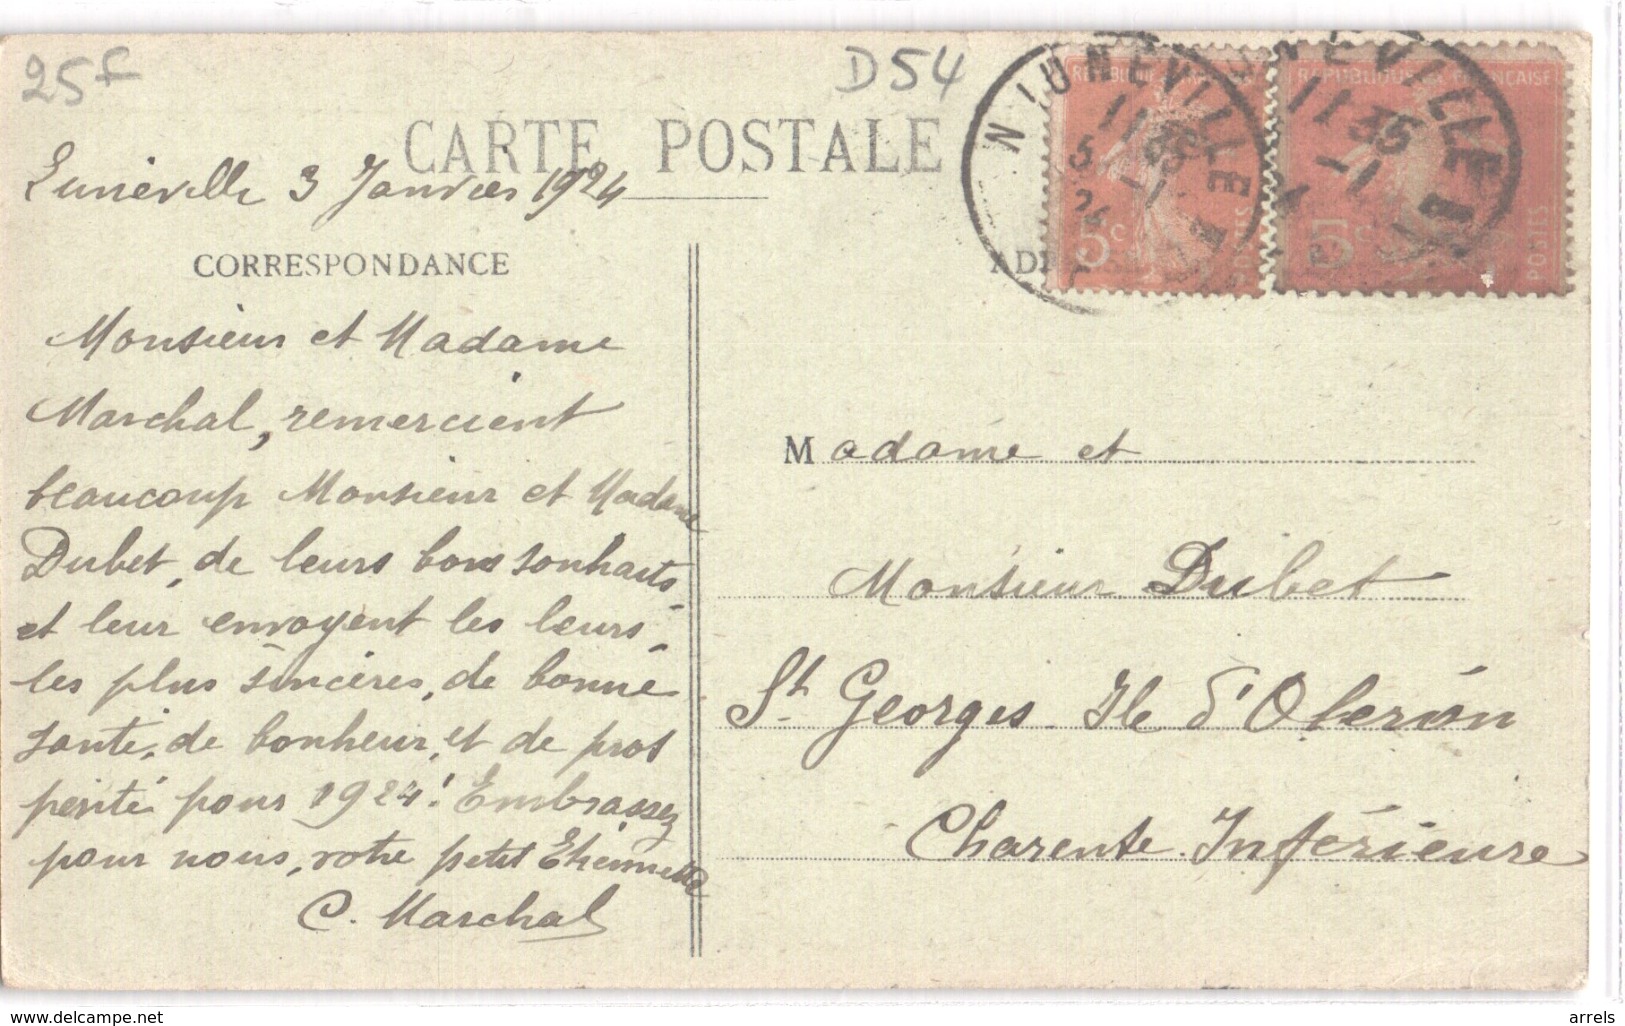 25f
D54
CARTE POSTALE
Lunéville 3 Janvier 1924
CORRESPONDANCE
Monsieur et Madame
Marchal, remercient
beaucoup Monsieur et Madame
Dubet, de leurs bons souhaits,
et leur envoyent les leurs,
les plus sincères, de bonne
santé, de bonheur, et de pros
périté pour 1924! Embrassez
pour nous, votre petit Etiennette
C. Marchal
LUNEVILLE
11 35
5 -1
24
LUNEVILLE
11 35
-1
5c
POSTES
5c
POSTES
REPUBLIQUE FRANÇAISE
Madame et
Monsieur Dubet
St Georges Ile d'Oleron
Charente Inférieure
www.delcampe.net
arrels